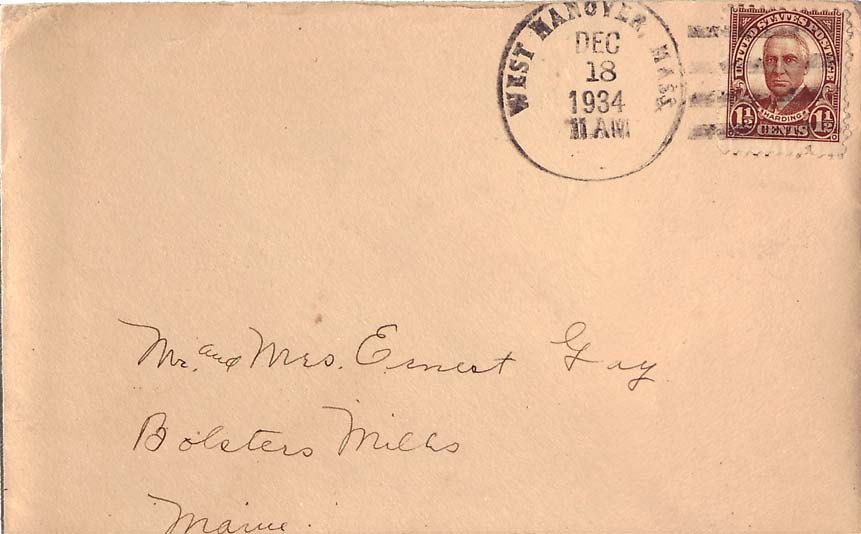 WEST HANOVER, MASS.
DEC
18
1934
11 AM
UNITED STATES POSTAGE
HARDING
1½ CENTS 1½
Mr. and Mrs. Ernest Gay
Bolsters Mills
Maine.